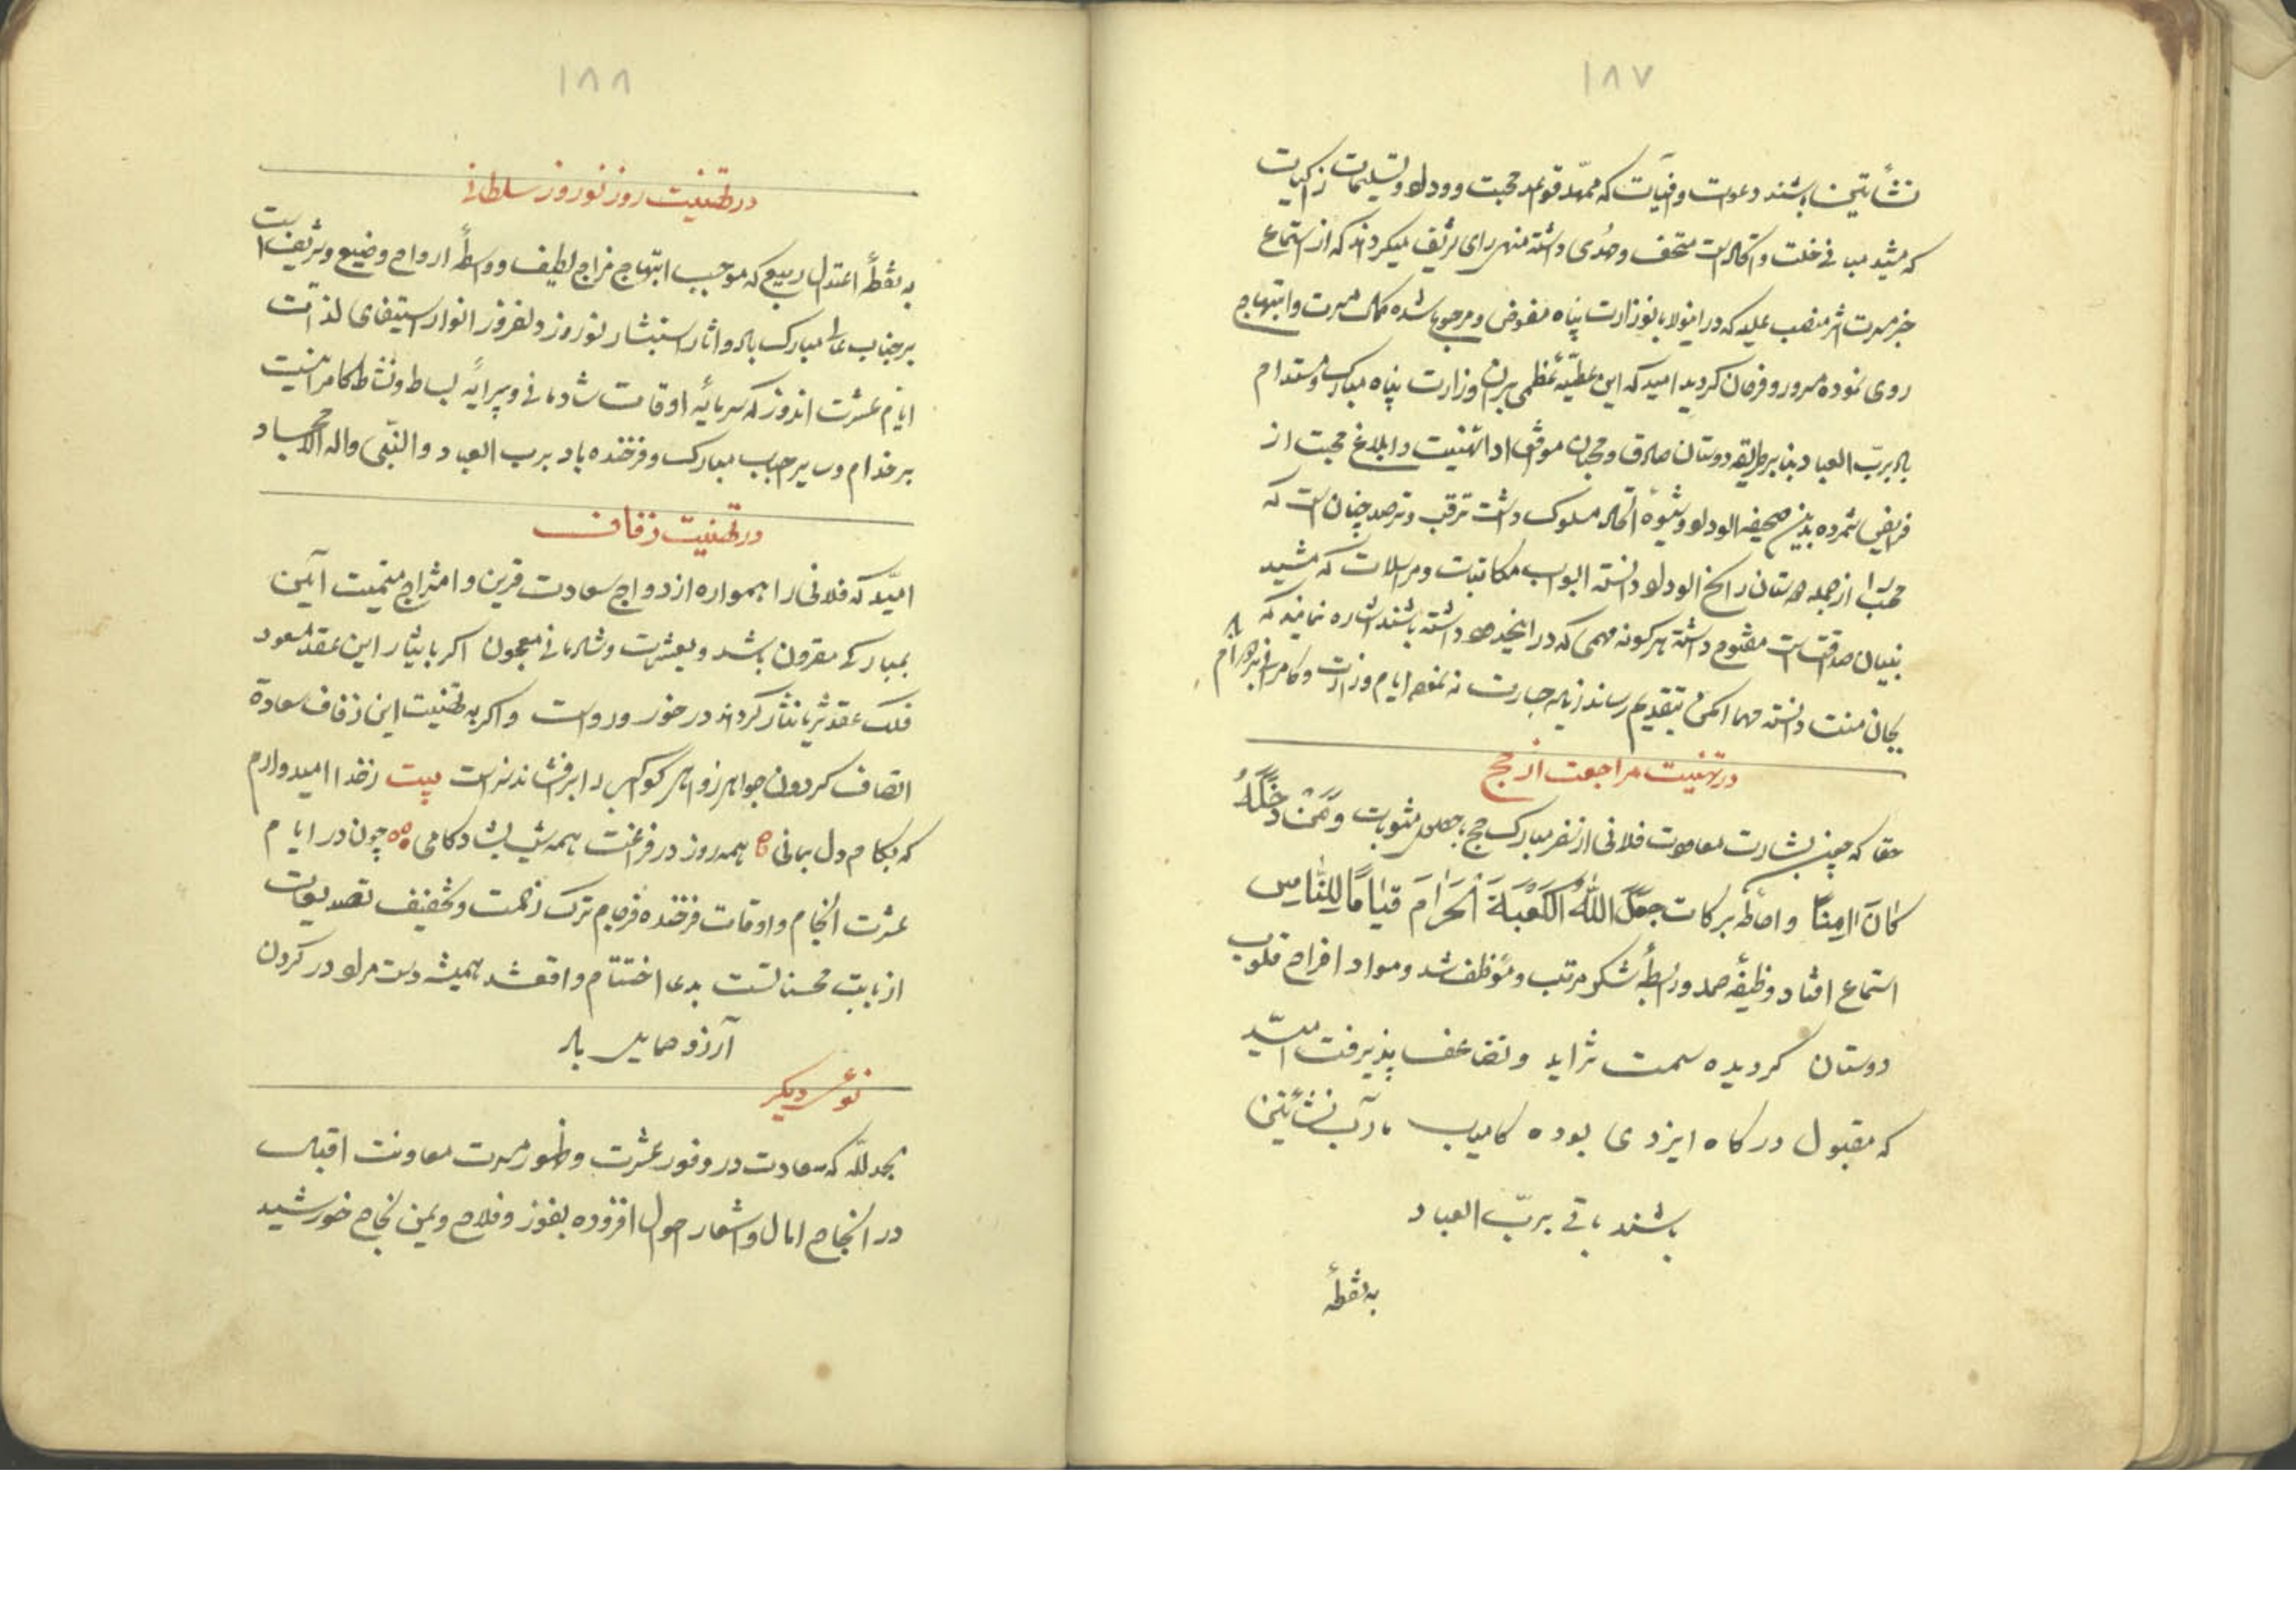 ۱۸۷
نشأتین باشند دعوات وافیات که ممهّد قواعد محبت و وداد و تسلیمات زاکیات
که مشید مبانی خلت و اتحاد است متحف و مُهدی داشته منهی رای شریف میکرداند که از استماع
خبر مسرت اثر منصب علیه که در اینولا بانوزارت پناه مفوض و مرجوع شده کمال مسرت و ابتهاج
روی نموده مسرور و فرحان کردید امید که این عطیّه عُظمی بر آن وزارت پناه مبارک و مستدام
باد بربّ العباد بنا بر طریقه دوستان صادق و محبان موافق اداء تهنیت و ابلاغ محبت از
فرایض شمرده بدین صحیفة الوداد و شیوهٔ اتحاد مسلوک داشت ترقب و ترصد چنان است که
محب را از جمله دوستان راسخ الوداد دانسته ابواب مکاتبات و مراسلات که مشید
بنیان صداقت است مفتوح داشته هر کونه مهمی که در اینحدود داشته باشند اشاره نمایند که
بجان منت دانسته مهما امکن بتقدیم رساند زیاده جسارت نه نمود ایام وزارت و کامرانی بر دوام باد
در تهنیت مراجعت از حج
حقا که چون بشارت معاودت فلانی از سفر مبارک حج با جعلی مثوبات وَمَنْ دَخَلَهُ
کَانَ اٰمِنًا و احاطه برکات جَعَلَ اللّٰهُ الْکَعْبَةَ الْحَرَامَ قِیَامًا لِلنَّاسِ
استماع افتاد وظیفهٔ حمد و رابطهٔ شکر مرتب و مؤظف شد و مواد افراح قلوب
دوستان کردیده سمت تزاید و تضاعف پذیرفت امیّد
که مقبول درکاه ایزدی بوده کامیاب مآرب نشأتین
باشند باقی بربّ العباد
به نقطهٔ
۱۸۸
در تهنیت روز نوروز سلطانی
به نقطهٔ اعتدال ربیع که موجب ابتهاج مزاج لطیف و واسطهٔ ارواح وضیع و شریف است
بر جناب عالی مبارک باد و اثار استبشار نوروز دلفروز انوار استیفای لذات
ایام عشرت اندوز که سرمایهٔ اوقات شادمانی و پیرایهٔ بساط و نشاط کامرانیست
بر خدام و سایر احباب مبارک و فرخنده باد برب العباد و النّبی واله الامجاد
در تهنیت زفاف
امیّد که فلانی را همواره ازدواج سعادت قرین و امتزاج میمنت آیین
بمبارکی مقرون باشد و بعشرت و شادمانی معجون اکر بایثار این عقد مسعود
فلک عقد ثریا نثار کرداند در خور و رواست و اکر به تهنیت این زفاف سعادة
اتصاف کردون جواهر زواهر کواکب را برفشاند سزاست بیت از خدا امیدوارم
که بکام دل بمانی همه روز در فراغت همه شب بشادکامی چون در ایام
عشرت انجام و اوقات فرخنده فرجام ترک زحمت و تخفیف تصدیعات
از بابت محسناتست بدعا اختتام واقع شد همیشه دست مراد در کردن
آرزو حمایل باد
نوع دیکر
بحمد لله که سعادت در وفور عشرت و ظهور مسرت معاونت اقبال
در انجاح امال و اسعار احوال افزوده بفوز و فلاح و یمن نجاح خورشید